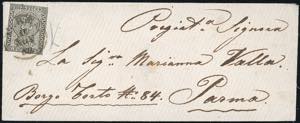 Pregiat.a Signora
La Sig.ra Marianna Valla.
Borgo Torto No. 84. Parma